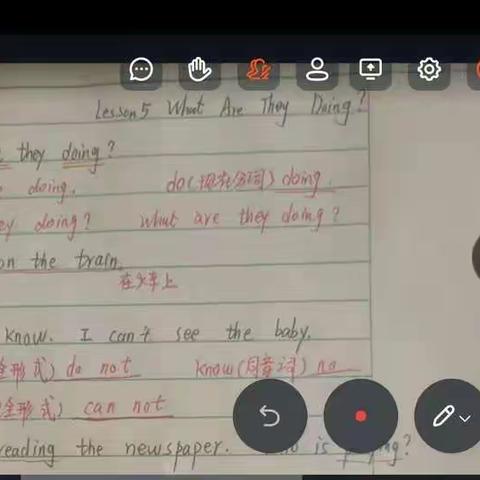 Lesson 5 What Are They Doing?
they doing?
doing. do(现在分词) doing.
doing? what are they doing?
on the train.
在火车上
know. I can't see the baby.
形式) do not know(同音词) no
形式) can not
reading the newspaper. is